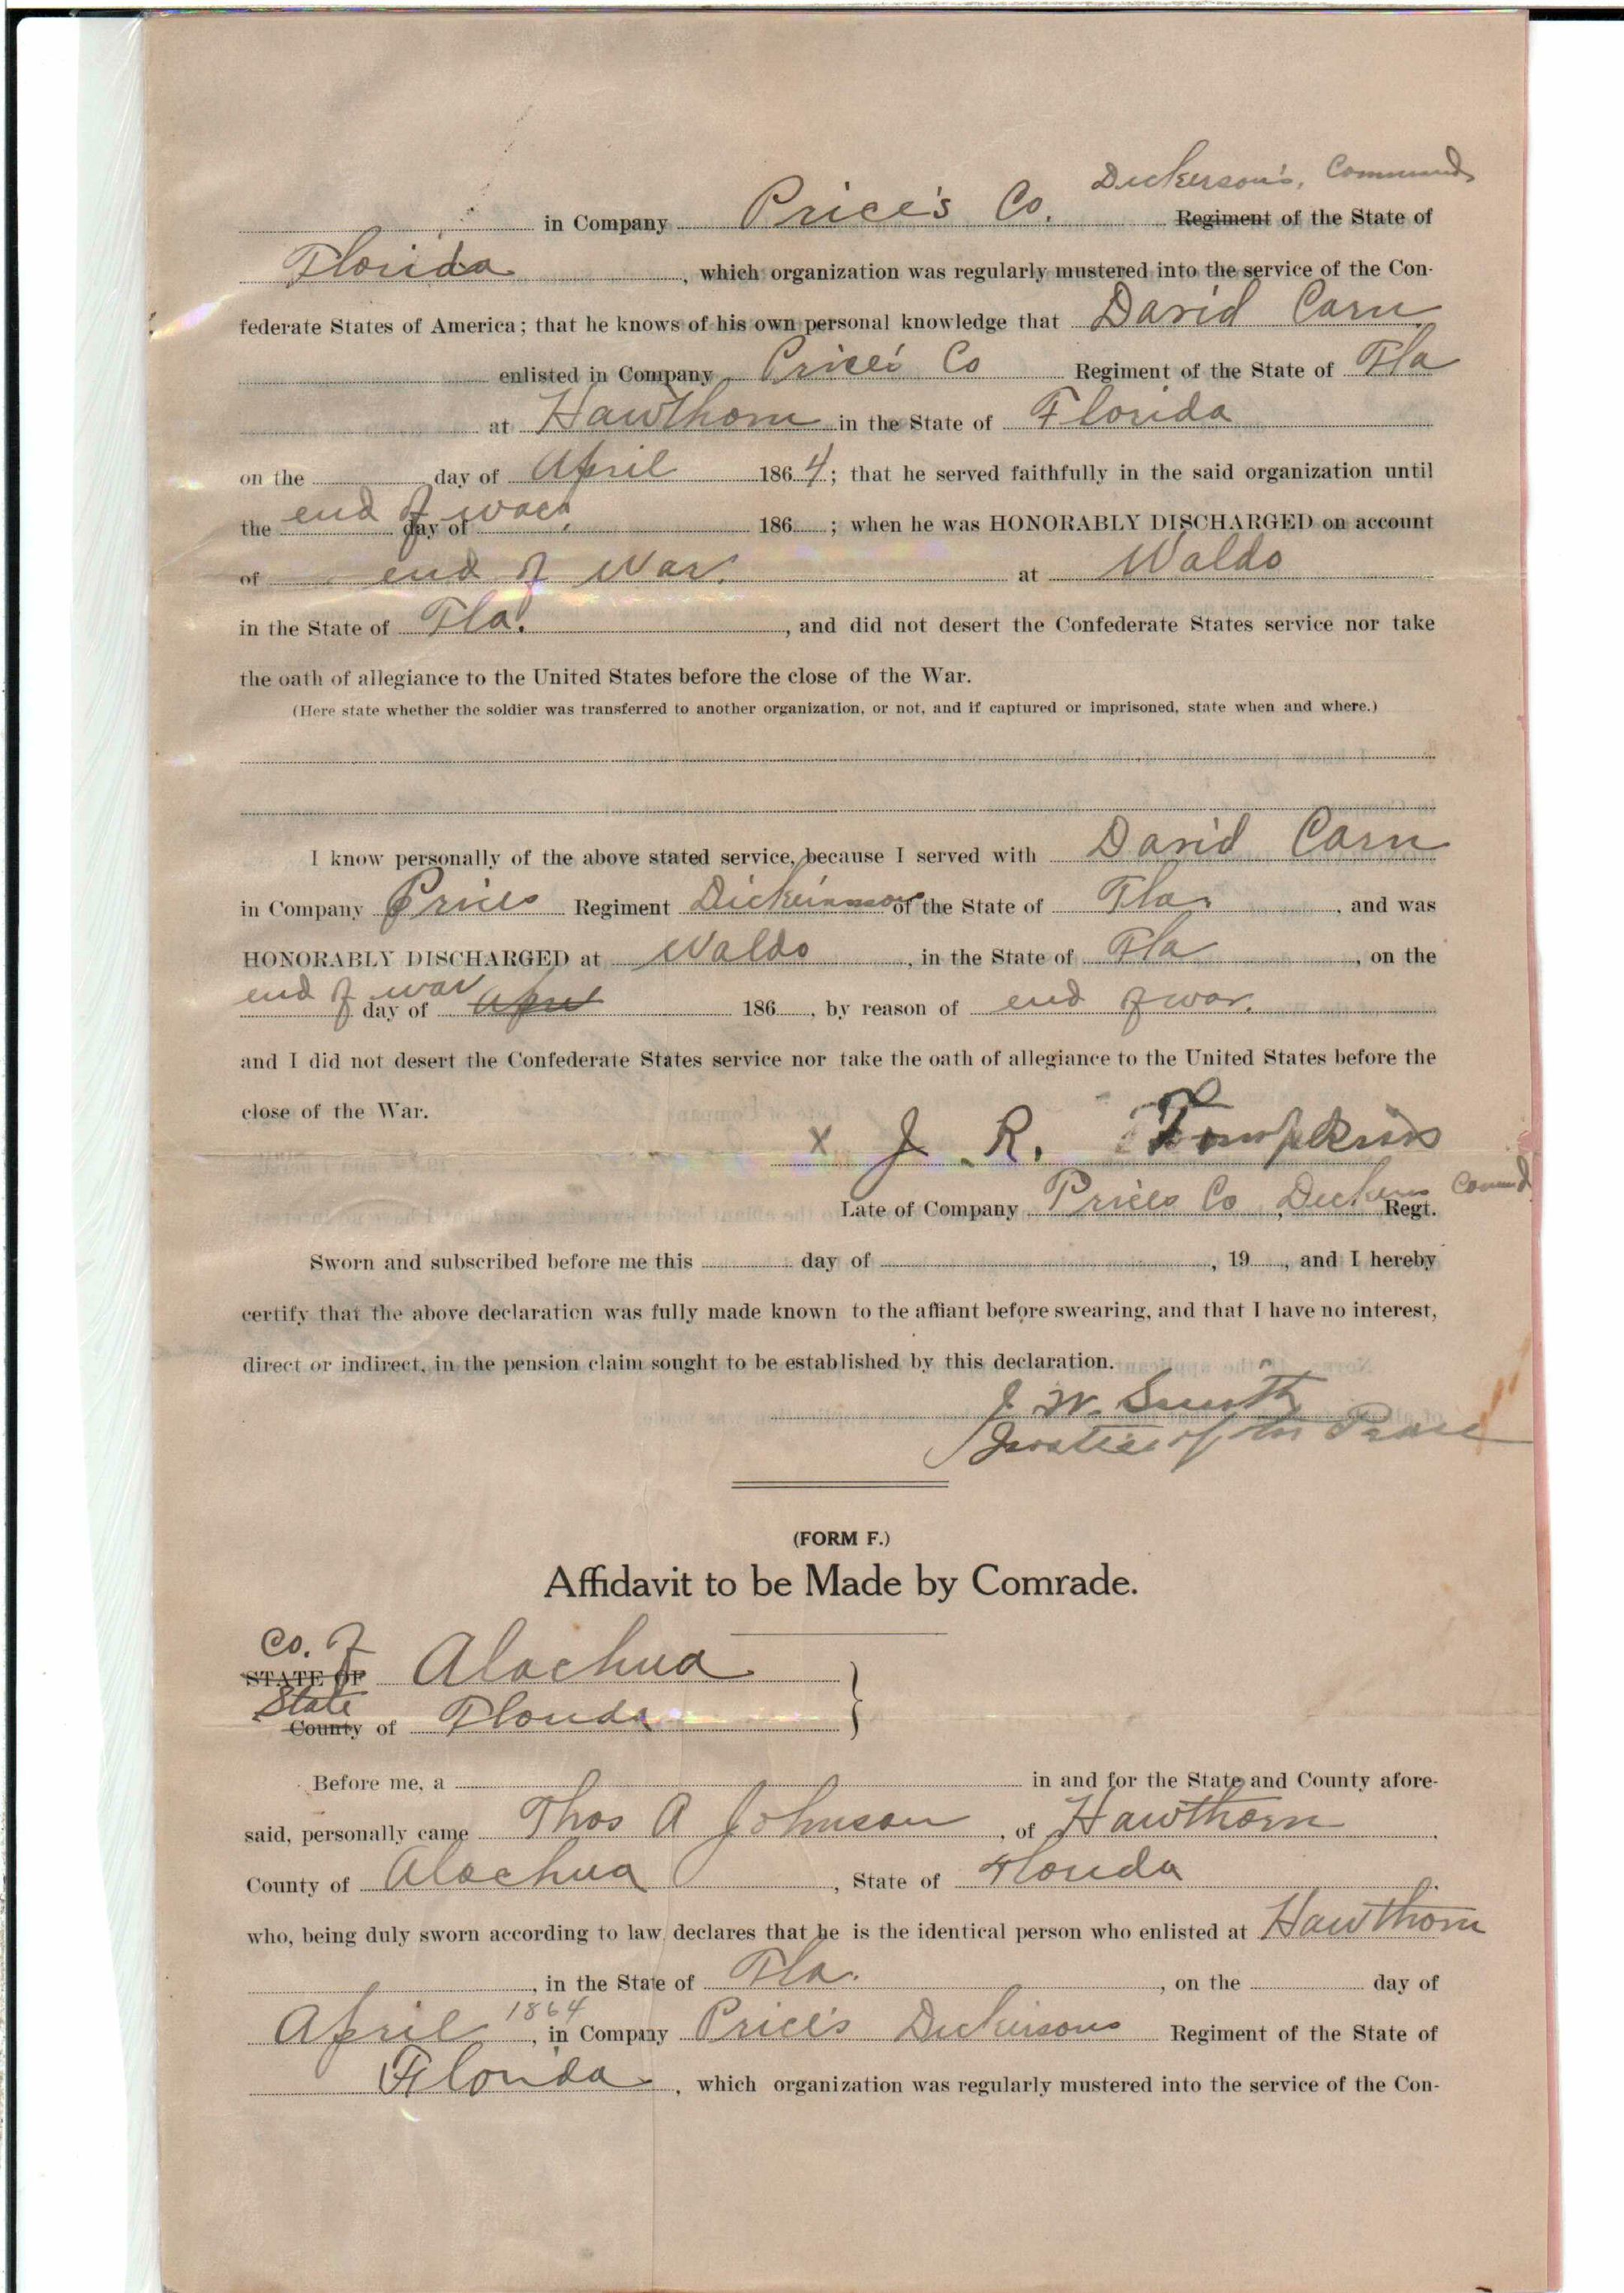 Dickerson's, Command
in Company Price's Co. Regiment of the State of
Florida, which organization was regularly mustered into the service of the Con-
federate States of America; that he knows of his own personal knowledge that David Carn
enlisted in Company Price's Co Regiment of the State of Fla
at Hawthorn in the State of Florida
on the day of April 1864; that he served faithfully in the said organization until
the end of war, day of 186 ; when he was HONORABLY DISCHARGED on account
of end of War. at Waldo
in the State of Fla., and did not desert the Confederate States service nor take
the oath of allegiance to the United States before the close of the War.
(Here state whether the soldier was transferred to another organization, or not, and if captured or imprisoned, state when and where.)
I know personally of the above stated service, because I served with David Carn
in Company Prices Regiment Dickinson of the State of Fla., and was
HONORABLY DISCHARGED at Waldo, in the State of Fla, on the
end of war day of April 186 , by reason of end of war.
and I did not desert the Confederate States service nor take the oath of allegiance to the United States before the
close of the War.
x J. R. Tompkins
Late of Company Prices Co, Dickens Comnd Regt.
Sworn and subscribed before me this day of , 19 , and I hereby
certify that the above declaration was fully made known to the affiant before swearing, and that I have no interest,
direct or indirect, in the pension claim sought to be established by this declaration.
J W. Smith
Justice of the Peace
(FORM F.)
Affidavit to be Made by Comrade.
Co. of
STATE OF Alachua
State
County of Florida
Before me, a in and for the State and County afore-
said, personally came Thos A Johnson, of Hawthorn
County of Alachua, State of Florida
who, being duly sworn according to law declares that he is the identical person who enlisted at Hawthorn
, in the State of Fla., on the day of
April 1864, in Company Price's Dickinsons Regiment of the State of
Florida, which organization was regularly mustered into the service of the Con-